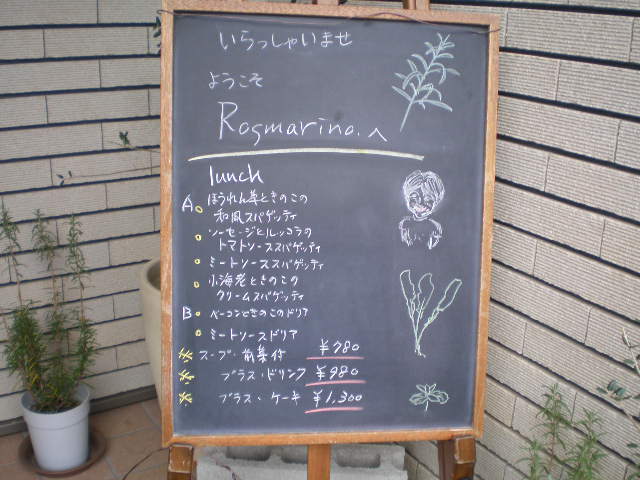 いらっしゃいませ
ようこそ
Rosmarino.へ
lunch
A 。ほうれん草ときのこの
和風スパゲッティ
。ソーセージとルッコラの
トマトソーススパゲッティ
。ミートソーススパゲッティ
。小海老ときのこの
クリームスパゲッティ
B 。ベーコンときのこのドリア
。ミートソースドリア
スープ・前菜付 ¥780
プラス・ドリンク ¥980
プラス・ケーキ ¥1,300